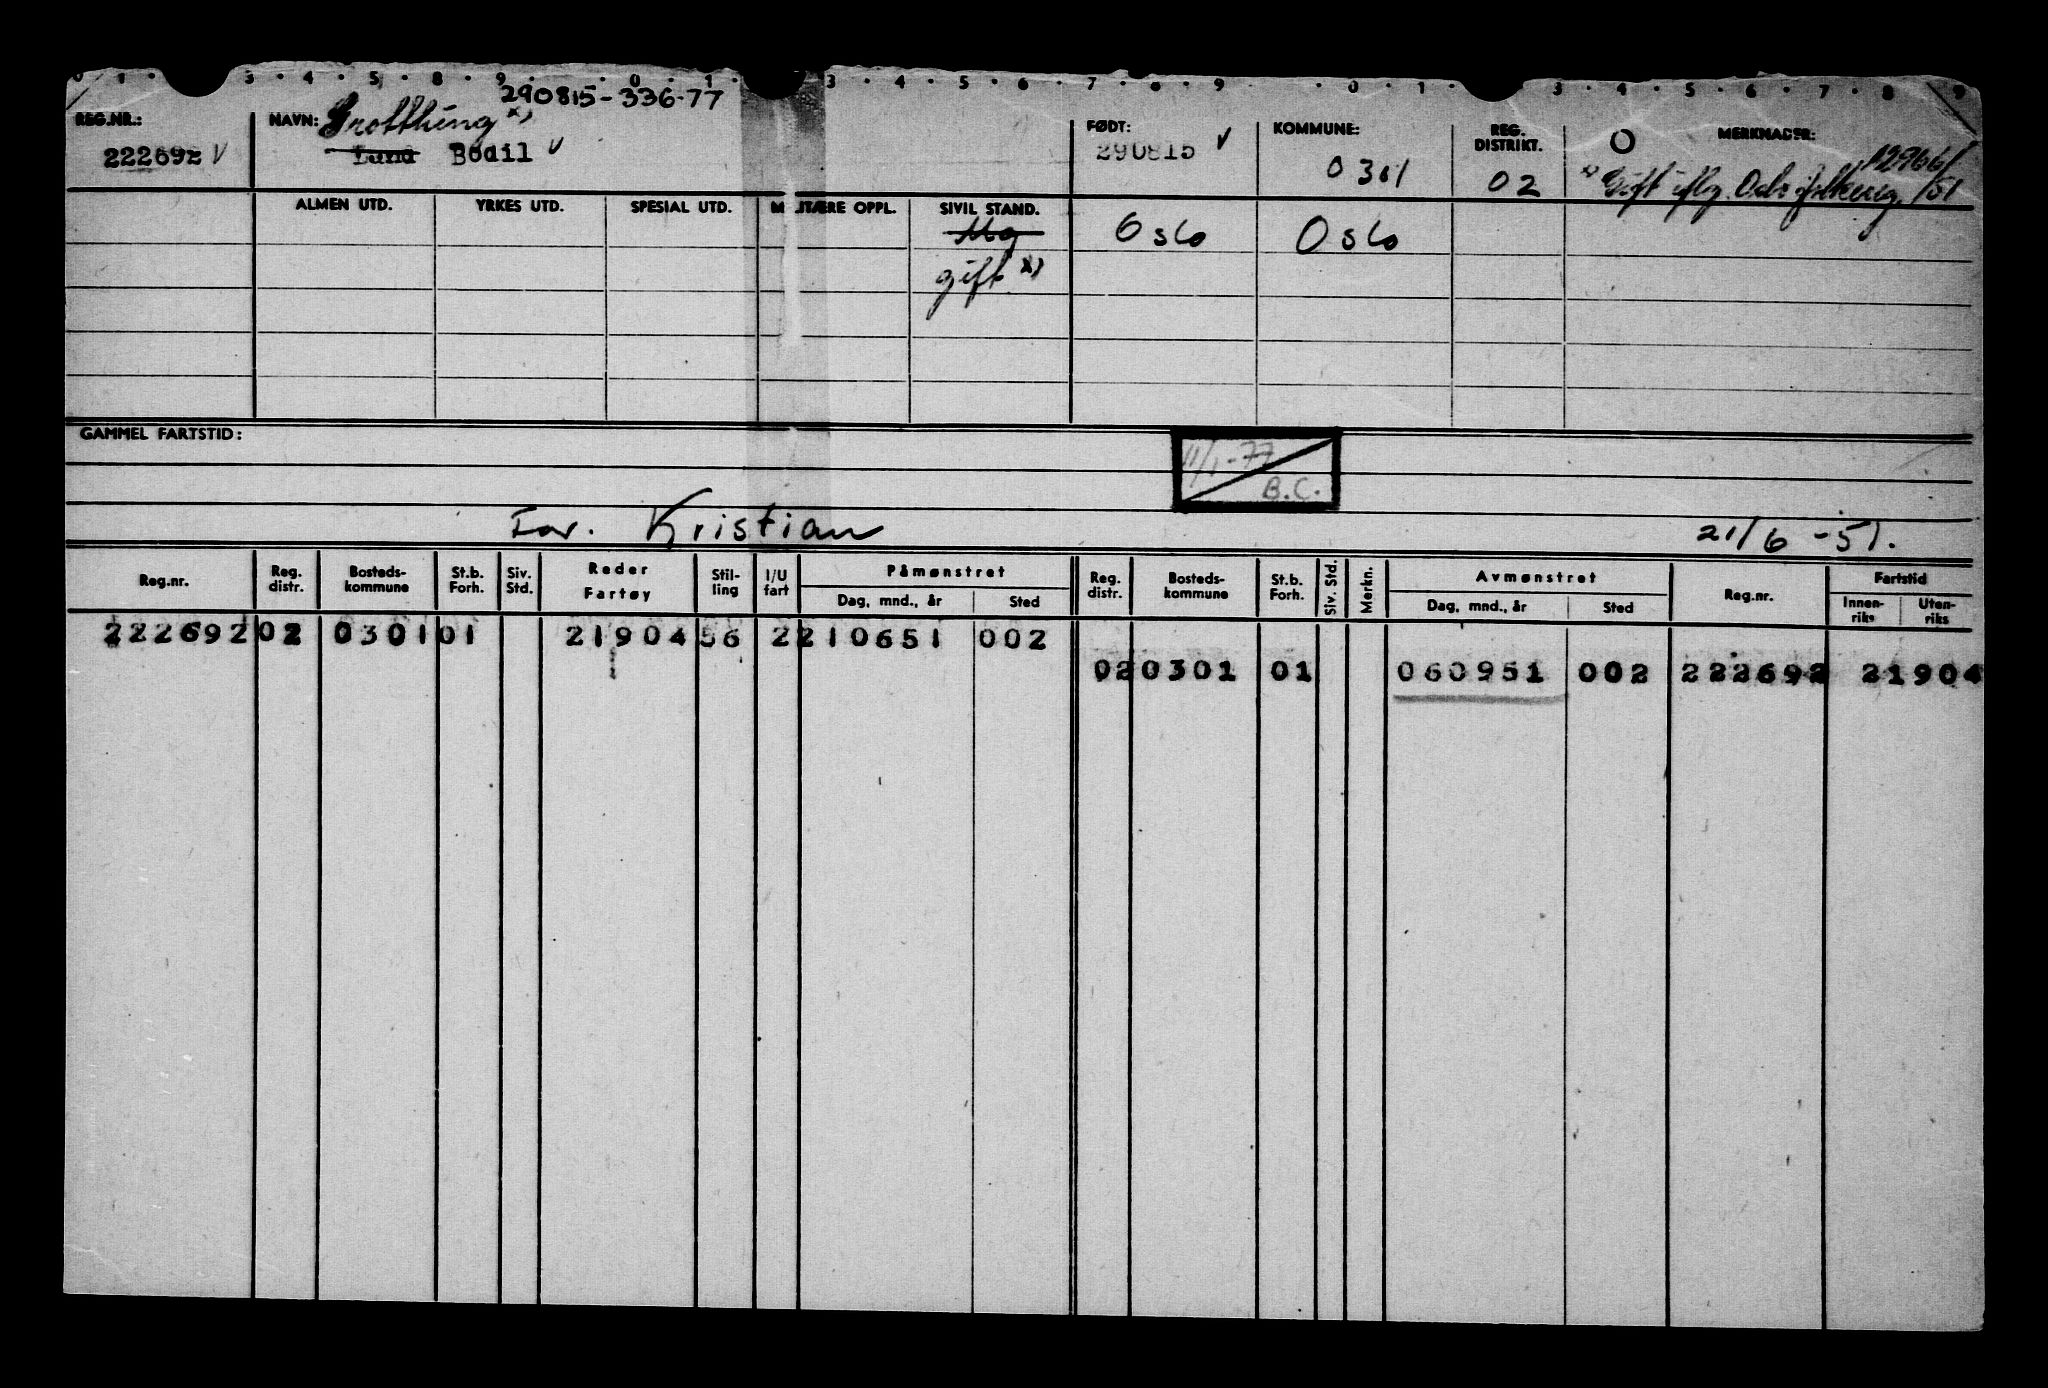 0 1 · 3 · 4 · 5 · 8 · 9 · · 0 · 1 · 3 · 4 · 5 · 6 · 7 · 8 · 9 · · 0 · 1 · 3 · 4 · 5 · 6 · 7 · 8 · 9
290815-336-77
REG.NR.: NAVN: Grotthing x) FØDT: KOMMUNE: REG. DISTRIKT. O MERKNADER:
222692 V Lund Bodil V 290815 V 0301 02 x) Gift iflg. 12966/51
ALMEN UTD. YRKES UTD. SPESIAL UTD. MILITÆRE OPPL. SIVIL STAND.
Ug Oslo Oslo
gift x)
GAMMEL FARTSTID:
11/1-77
B.C.
For. Kristian 21/6-51.
Reg.nr. Reg. distr. Bosteds-kommune St.b. Forh. Siv. Std. Reder Fartøy Stil-ling I/U fart Påmønstret Reg. distr. Bosteds-kommune St.b. Forh. Siv. Std. Merkn. Avmønstret Reg.nr. Fartstid
Dag, mnd., år Sted Dag, mnd., år Sted Innen-riks Uten-riks
222692 02 0301 01 21904 56 2 210651 002
02 0301 01 060951 002 222692 21904